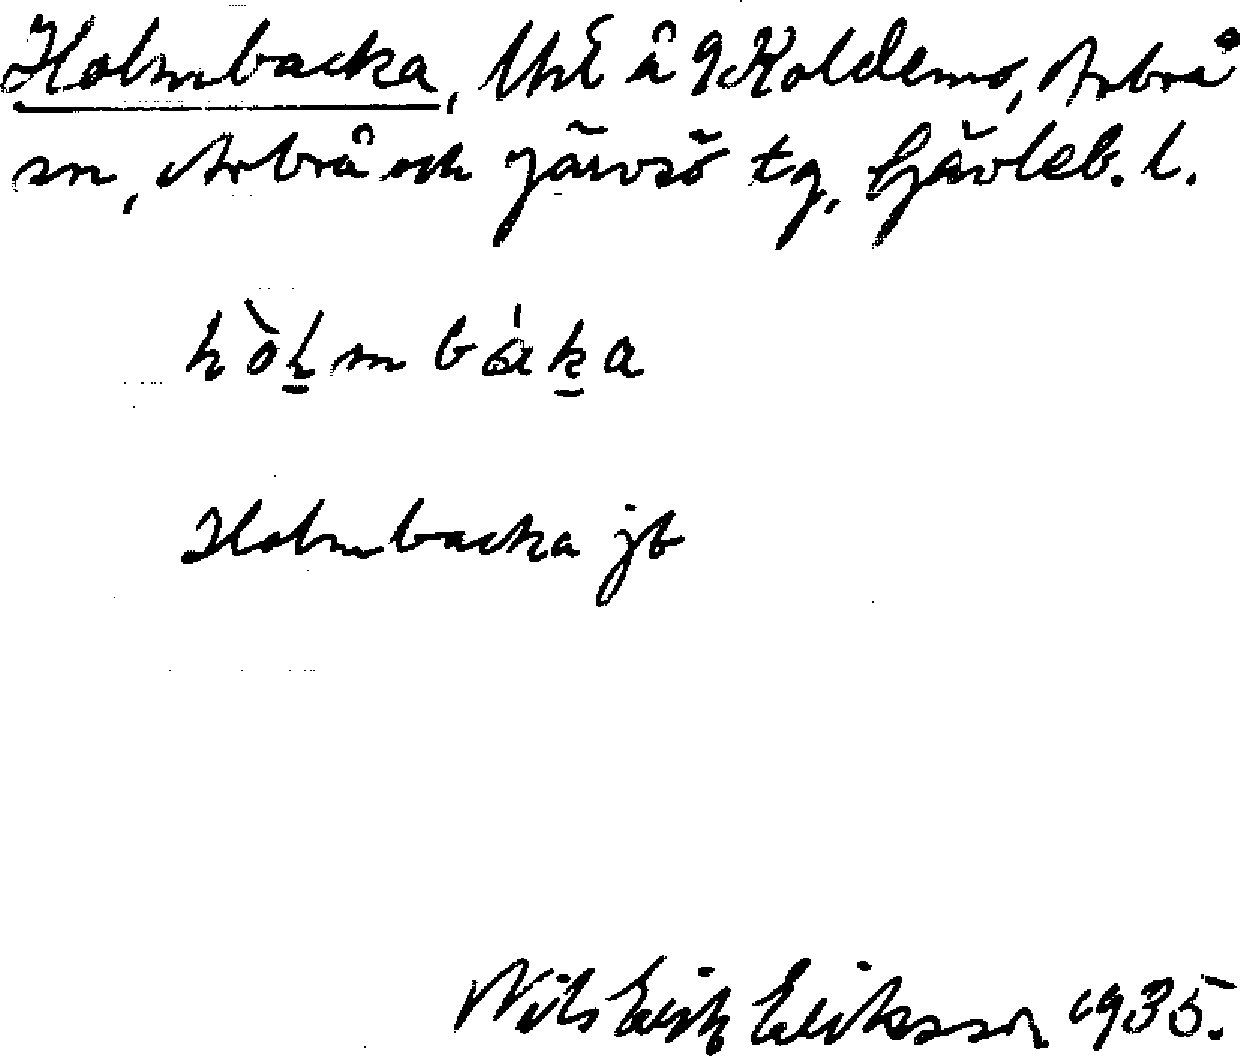 Holmbacka, UhE å 9 Koldemo, Arbrå
sn, Arbrå och Järvsö tg, Gävleb. l.
hòḻm báḵa
Holmbacka jb
Nils Erik Eriksson 1935.